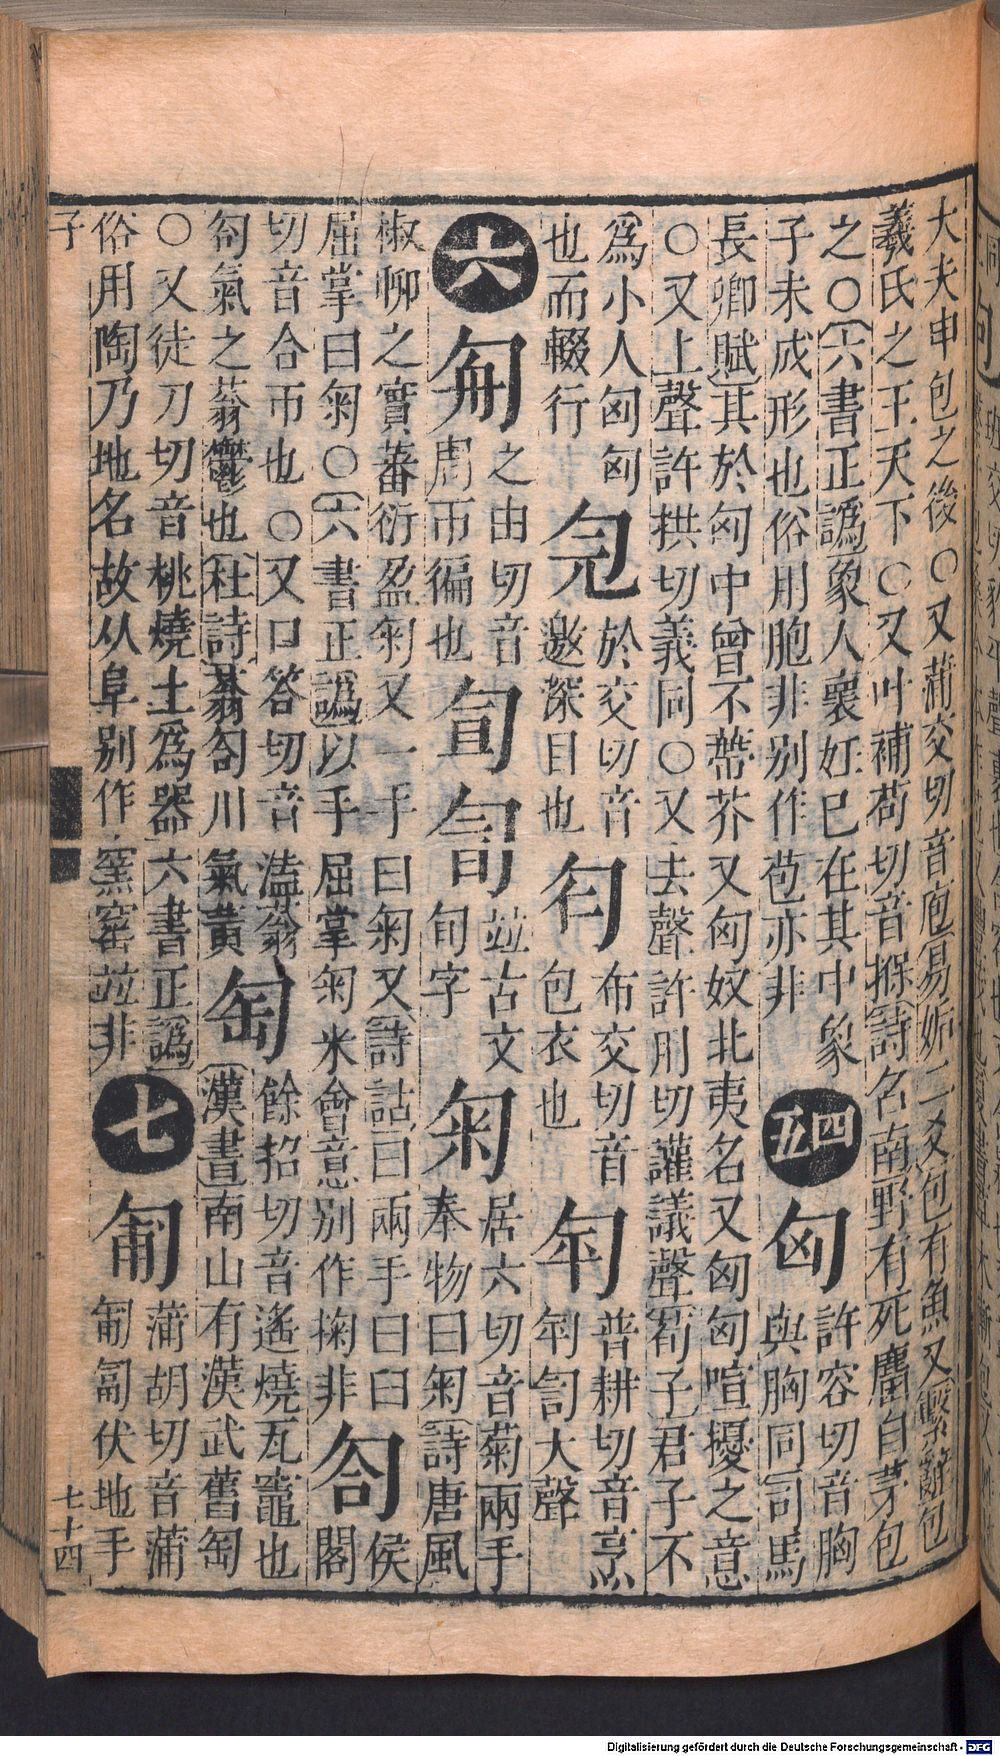 大夫申包之後〇又蒲交切音庖易姤二爻包有魚又繫辭包
羲氏之王天下〇又叶補苟切音掭詩名南野有死麕白茅包
之〇六書正譌象人褢妊巳在其中象
子未成形也俗用胞非别作苞亦非
四五
匈
許容切音胸
與胸同司馬
長卿賦其於匈中曾不蔕芥又匈奴北夷名又匈匈喧擾之意
〇又上聲許拱切義同〇又去聲許用切讙議聲荀子君子不
爲小人匈匈
也而輟行
於交切音
邀深目也
布交切音
包衣也
匉
普耕切音烹
匉訇大聲
六
匊
之由切音
周帀徧也
並古文
旬字
匊
居六切音菊兩手
奉物曰匊詩唐風
椒聊之實蕃衍盈匊又一手曰匊又詩詁曰兩手曰臼
屈掌曰匊〇六書正譌以手屈掌匊米會意别作掬非
匌
侯閣
切音合帀也〇又口答切音溘蓊
匌氣之蓊鬱也杜詩蓊匌川氣黄
匋
餘招切音遙燒瓦竈也
漢書南山有漢武舊匋
〇又徒刀切音桃燒土爲器六書正譌
俗用陶乃地名故从阜别作窯窑並非
七
匍
蒲胡切音蒲
匍匐伏地手
子
七十四
Digitalisierung gefördert durch die Deutsche Forschungsgemeinschaft - DFG